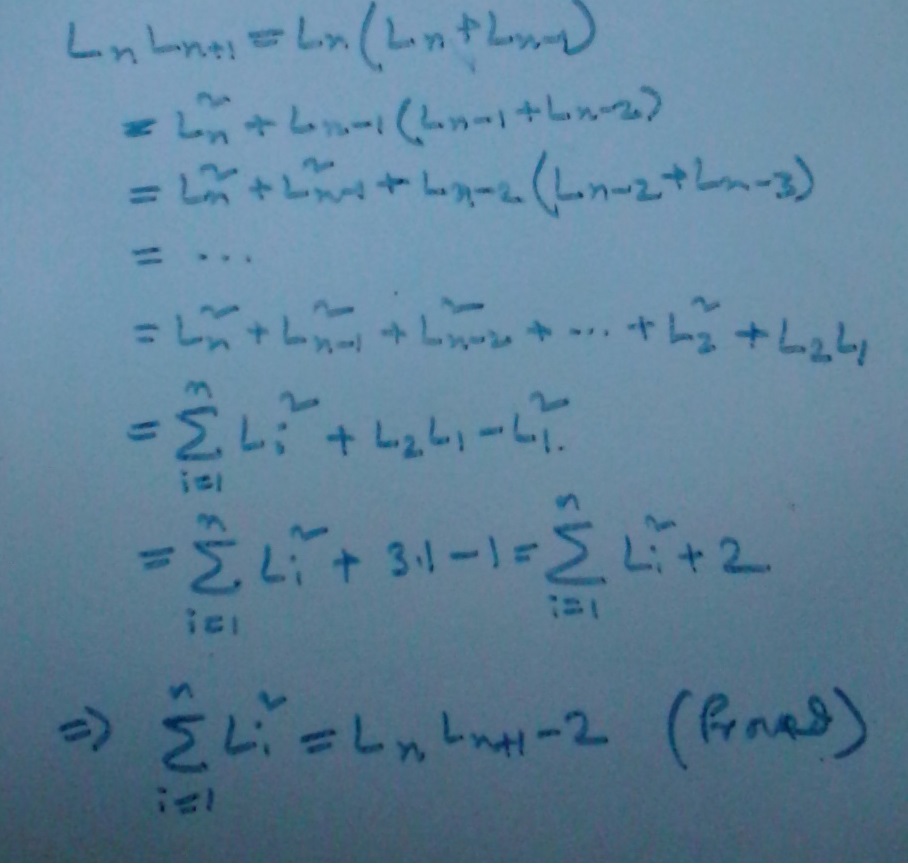 Lₙ Lₙ₊₁ = Lₙ (Lₙ + Lₙ₋₁)
= Lₙ² + Lₙ₋₁ (Lₙ₋₁ + Lₙ₋₂)
= Lₙ² + Lₙ₋₁² + Lₙ₋₂ (Lₙ₋₂ + Lₙ₋₃)
= ...
= Lₙ² + Lₙ₋₁² + Lₙ₋₂² + ... + L₂² + L₂L₁
= ∑ᵢ₌₁ⁿ Lᵢ² + L₂L₁ − L₁².
= ∑ᵢ₌₁ⁿ Lᵢ² + 3.1 − 1 = ∑ᵢ₌₁ⁿ Lᵢ² + 2
⇒ ∑ᵢ₌₁ⁿ Lᵢ² = Lₙ Lₙ₊₁ − 2 (Proved)